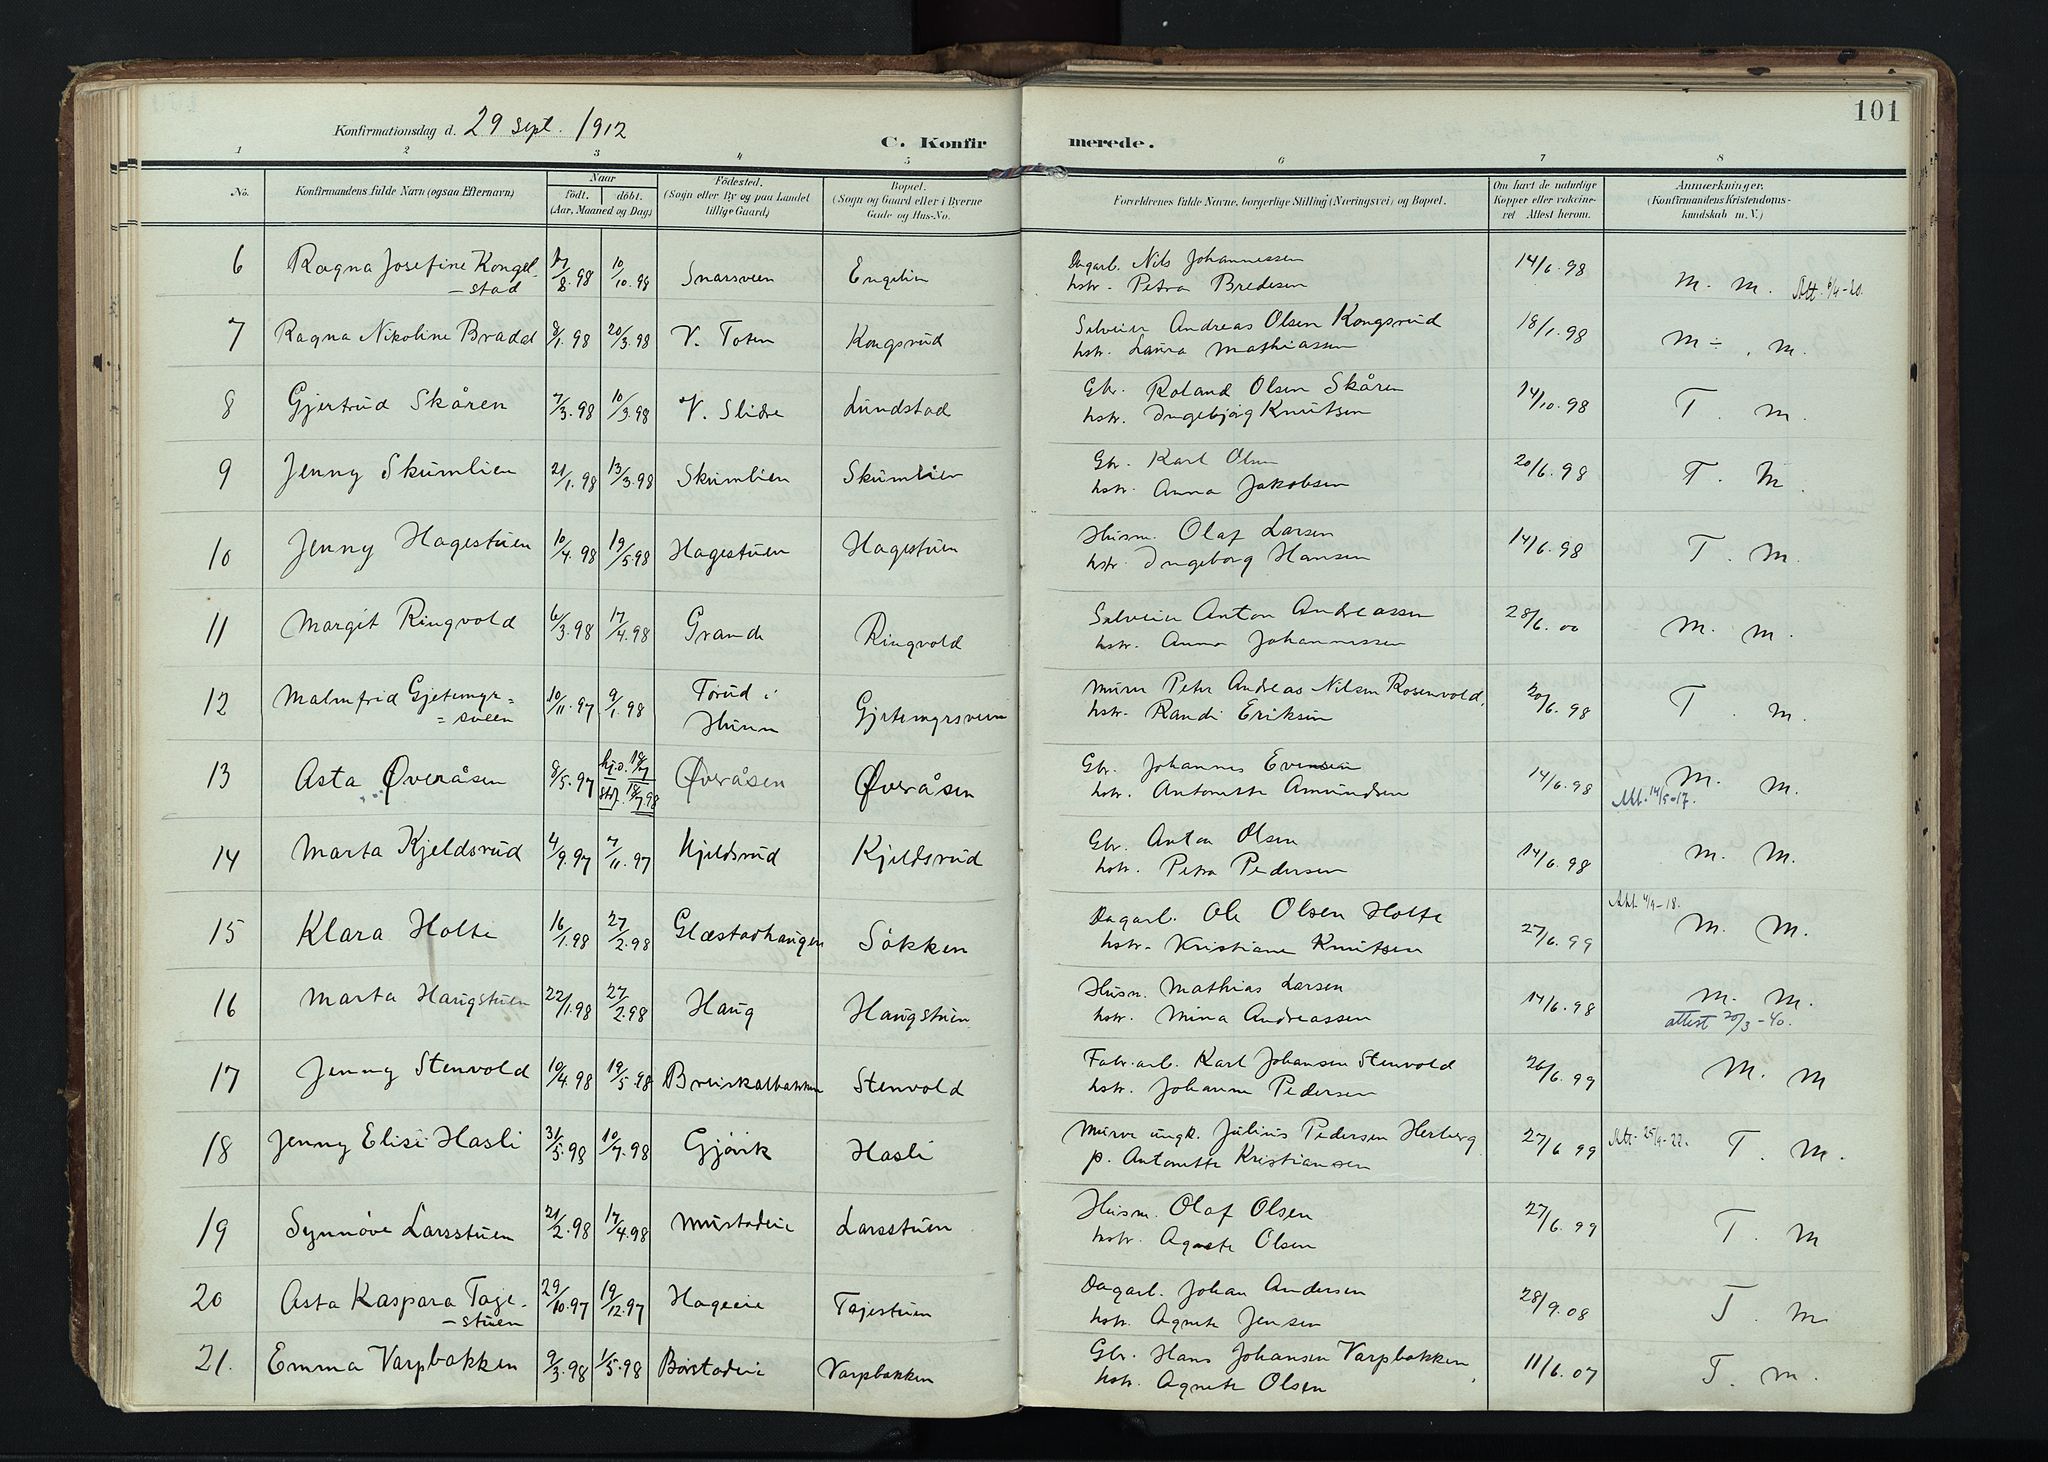 101
Konfirmationsdag d. 29 sept. 1912
C. Konfirmerede.
1 2 3 4 5 6 7 8
No. Konfirmandens fulde Navn (ogsaa Efternavn) Naar födt. döbt. (Aar, Maaned og Dag) Födested. (Sogn eller By og paa Landet tillige Gaard) Bopæl. (Sogn og Gaard eller i Byerne Gade og Hus-No. Forældrenes fulde Navne, borgerlige Stilling (Næringsvei) og Bopæl. Om havt de naturlige Kopper eller vakcineret Attest herom. Anmærkninger. (Konfirmandens Kristendomskundskab m. V.)
6 Ragna Josefine Kongel- 8.98 10/10.98 Snarsveen Engelin Dagarb. Nils Johannessen 14/6.98 M. M. Att. -20.
-stad hstr. Petra Bredesen
7 Ragna Nikoline Bradal 8/1.98 20/3.98 V. Toten Kongsrud Selveier Andreas Olsen Kongsrud 18/1.98 M ÷ . M.
hstr. Laura Mathiassen
8 Gjertrud Skåren 7/3.98 10/3.98 V. Slidre Lundstad Gbr. Roland Olsen Skåren 14/10.98 T. M.
hstr. Ingebjörg Knutsen
9 Jenny Skumlien 21/1.98 13/3.98 Skumlien Skumlien Gbr. Karl Olsen 20/6.98 T. M.
hstr. Anna Jakobsen
10 Jenny Hagestuen 10/4.98 19/5.98 Hagestuen Hagestuen Husm. Olaf Larsen 14/6.98 T. M.
hstr. Ingeborg Hansen
11 Margit Ringvold 6/3.98 17/4.98 Grande Ringvold Selveier Anton Andreassen 28/6.00 M. M.
hstr. Anna Johannessen
12 Malmfrid Gjetemyr= 10/11.97 9/1.98 Förud i Gjetemyrsveen Murer Peter Andreas Nilsen Rosenvold, 20/6.98 T. M.
=sveen Hunn hstr. Randi Eriksen
13 Asta Överåsen 8/5.97 hj.d. 18/7 Överåsen Överåsen Gbr. Johannes Evensen 14/6.98 M. M.
stdf. 98 hstr. Antonette Amundsen Att. 14/5-17.
14 Marta Kjeldsrud 4/9.97 7/11.97 Kjeldsrud Kjeldsrud Gbr. Anton Olsen 14/6.98 M. M.
hstr. Petra Pedersen
15 Klara Holte 16/1.98 27/2.98 Glæstadhaugen Sökken Dagarb. Ole Olsen Holte 27/6.99 Att. -18. M. M.
hstr. Kristiane Knutsen
16 Marta Haugstuen 22/1.98 27/2.98 Haug Haugstuen Husm. Mathias Larsen 14/6.98 M. M.
hstr. Mina Andreassen attest 20/3-40.
17 Jenny Stenvold 10/4.98 19/5.98 Breiskalbakken Stenvold Fabr.arb. Karl Johansen Stenvold 26/6.99 M. M
hstr. Johanne Pedersen
18 Jenny Elise Hasli 31/5.98 10/7.98 Gjövik Hasli Murer ungk. Julius Pedersen Herberg 27/6 99 Att. 25/9-22. T. M.
p. Antonette Kristiansen
19 Synnöve Larsstuen 21/2.98 17/4.98 Mustadeie Larsstuen Husm. Olaf Olsen 27/6.99 T. M
hstr. Agnete Olsen
20 Asta Kaspara Tage- 29/10.97 19/12.97 Hageeie Tajestuen Dagarb. Johan Andersen 28/9.08 T. M
-stuen hstr. Agnete Jensen
21. Emma Varpbakken 9/3.98 1/5.98 Börstadeie Varpbakken Gbr. Hans Johansen Varpbakken, 11/6.07 T. M.
hstr. Agnete Olsen